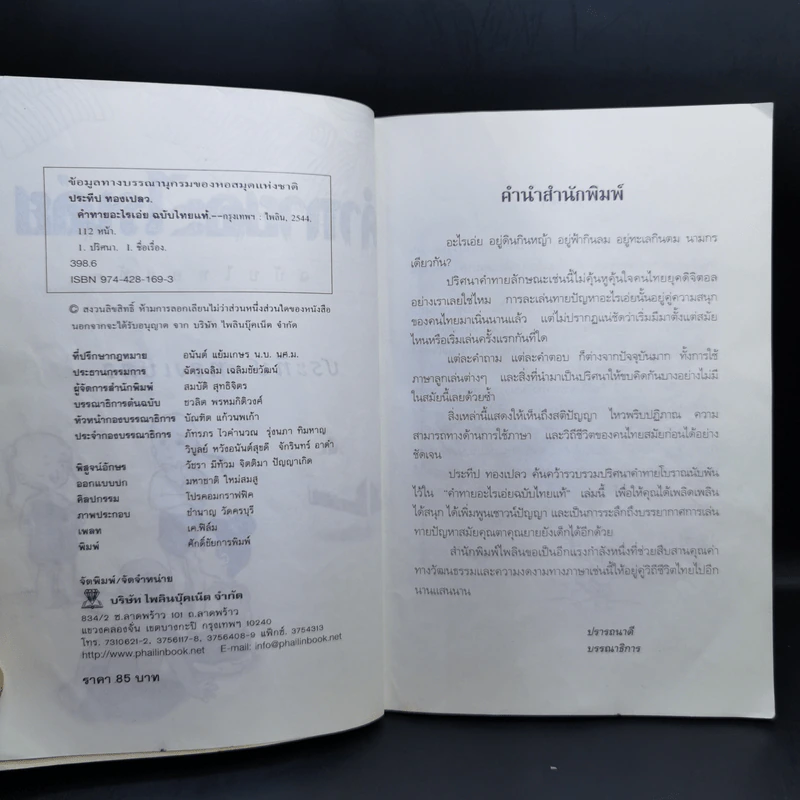 ข้อมูลทางบรรณานุกรมของหอสมุดแห่งชาติ
ประทีป ทองเปลว.
คำทายอะไรเอ่ย ฉบับไทยแท้.--กรุงเทพฯ : ไพลิน, 2544.
112 หน้า.
1. ปริศนา. I. ชื่อเรื่อง.
398.6
ISBN 974-428-169-3
© สงวนลิขสิทธิ์ ห้ามการลอกเลียนไม่ว่าส่วนหนึ่งส่วนใดของหนังสือ
นอกจากจะได้รับอนุญาต จาก บริษัท ไพลินบุ๊คเน็ต จำกัด
ที่ปรึกษากฎหมาย อนันต์ แย้มเกษร น.บ. นศ.ม.
ประธานกรรมการ ฉัตรเฉลิม เฉลิมชัยวัฒน์
ผู้จัดการสำนักพิมพ์ สมบัติ สุทธิจิตร
บรรณาธิการต้นฉบับ ชวลิต พรหมกิติวงค์
หัวหน้ากองบรรณาธิการ บัณฑิต แก้วนพเก้า
ประจำกองบรรณาธิการ ภัทรภร ไวคำนวณ รุ่งนภา ทิมหาญ
วิบูลย์ หวังอนันต์สุขดี จักรินทร์ อาดำ
พิสูจน์อักษร วัชรา มีท้วม จิตติมา ปัญญาเกิด
ออกแบบปก มหาชาติ ใหม่สมสู่
ศิลปกรรม โปรคอมกราฟฟิค
ภาพประกอบ ชำนาญ วัดครบุรี
เพลท เค.ฟิล์ม
พิมพ์ ศักดิ์ชัยการพิมพ์
จัดพิมพ์/จัดจำหน่าย
บริษัท ไพลินบุ๊คเน็ต จำกัด
834/2 ซ.ลาดพร้าว 101 ถ.ลาดพร้าว
แขวงคลองจั่น เขตบางกะปิ กรุงเทพฯ 10240
โทร. 7310621-2, 3756117-8, 3756408-9 แฟ็กซ์. 3754313
http://www.phailinbook.net E-mail: info@phailinbook.net
ราคา 85 บาท
คำนำสำนักพิมพ์
อะไรเอ่ย อยู่ดินกินหญ้า อยู่ฟ้ากินลม อยู่ทะเลกินตม นามกร
เดียวกัน?
ปริศนาคำทายลักษณะเช่นนี้ไม่คุ้นหูคุ้นใจคนไทยยุคดิจิตอล
อย่างเราเลยใช่ไหม การละเล่นทายปัญหาอะไรเอ่ยนั้นอยู่คู่ความสนุก
ของคนไทยมาเนิ่นนานแล้ว แต่ไม่ปรากฏแน่ชัดว่าเริ่มมีมาตั้งแต่สมัย
ไหนหรือเริ่มเล่นครั้งแรกกันที่ใด
แต่ละคำถาม แต่ละคำตอบ ก็ต่างจากปัจจุบันมาก ทั้งการใช้
ภาษาลูกเล่นต่างๆ และสิ่งที่นำมาเป็นปริศนาให้ขบคิดกันบางอย่างไม่มี
ในสมัยนี้เลยด้วยซ้ำ
สิ่งเหล่านี้แสดงให้เห็นถึงสติปัญญา ไหวพริบปฏิภาณ ความ
สามารถทางด้านการใช้ภาษา และวิถีชีวิตของคนไทยสมัยก่อนได้อย่าง
ชัดเจน
ประทีป ทองเปลว ค้นคว้ารวบรวมปริศนาคำทายโบราณนับพัน
ไว้ใน "คำทายอะไรเอ่ยฉบับไทยแท้" เล่มนี้ เพื่อให้คุณได้เพลิดเพลิน
ได้สนุก ได้เพิ่มพูนเชาวน์ปัญญา และเป็นการระลึกถึงบรรยากาศการเล่น
ทายปัญหาสมัยคุณตาคุณยายยังเด็กได้อีกด้วย
สำนักพิมพ์ไพลินขอเป็นอีกแรงกำลังหนึ่งที่ช่วยสืบสานคุณค่า
ทางวัฒนธรรมและความงดงามทางภาษาเช่นนี้ให้อยู่คู่วิถีชีวิตไทยไปอีก
นานแสนนาน
ปรารถนาดี
บรรณาธิการ